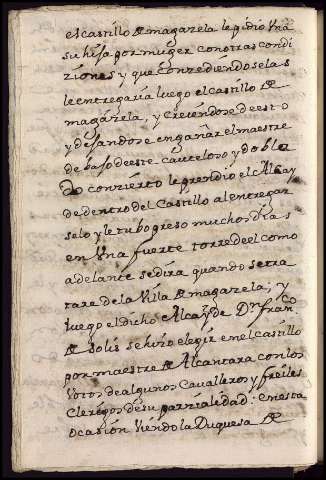 el castillo de magazela le pidio Una
su hija por muger con otras condi
ziones y que conzediendoselas
le entregaria luego el castillo de
magazela, y creiendose de esto
y dejandose engañar el maestre
de bajo deeste cauteloso y dobla
do conzierto le prendio el Alcay
de dentro del Castillo al entregar
selo y le tubo preso muchos dias
en Una fuerte torre de el como
adelante se dira quando se tra
tare de la Villa de magazela; y
luego el dicho Alcayde Dn. fran.co
de Solis se hizo elegir en el Castillo
por maestre de Alcantara con los
votos de algunos Cavalleros y freiles
Clerigos de su parzialidad: en esta
ocasion Viendo la Duquesa de